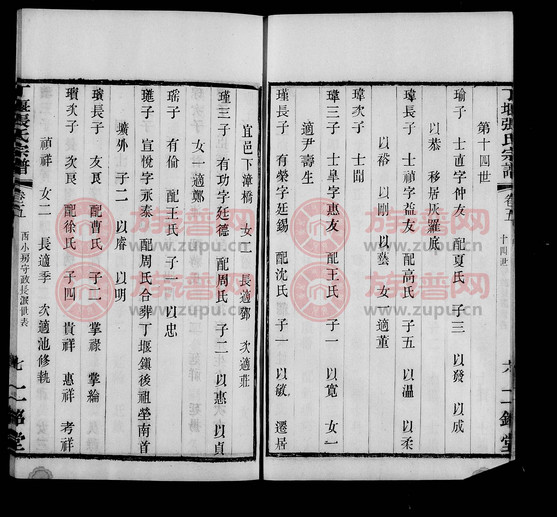 丁堰張氏宗譜
卷五
十四世
六
二銘堂
第十四世
瑜子 士直字仲友 配夏氏 子三 以發 以成
以恭 移居灰羅底
瑋長子 士禎字益友 配高氏 子五 以溫 以柔
以裕 以剛 以藝 女適董
瑋次子 士閗
瑋三子 士臯字惠友 配王氏 子一 以寬 女一
適尹壽生
瑾長子 有榮字廷錫 配沈氏 子一 以敏 遷居
宜邑下漳橋 女二 長適鄧 次適莊
瑾三子 有功字廷德 配周氏 子二 以惠 以貞
女一適鄭
瑤子 有倫 配王氏 子一 以忠
璡子 宣悅字永泰 配周氏合葬丁堰鎮後祖塋南首
壙外 子二 以濬 以明
璸長子 友良 配曹氏 子二 掌祿 掌綸
璸次子 次良 配徐氏 子四 貴祥 惠祥 考祥
禎祥 女二 長適季 次適池修執
丁堰張氏宗譜
卷五
西小房守政長派世表
七
二銘堂
族譜网
www.zupu.cn